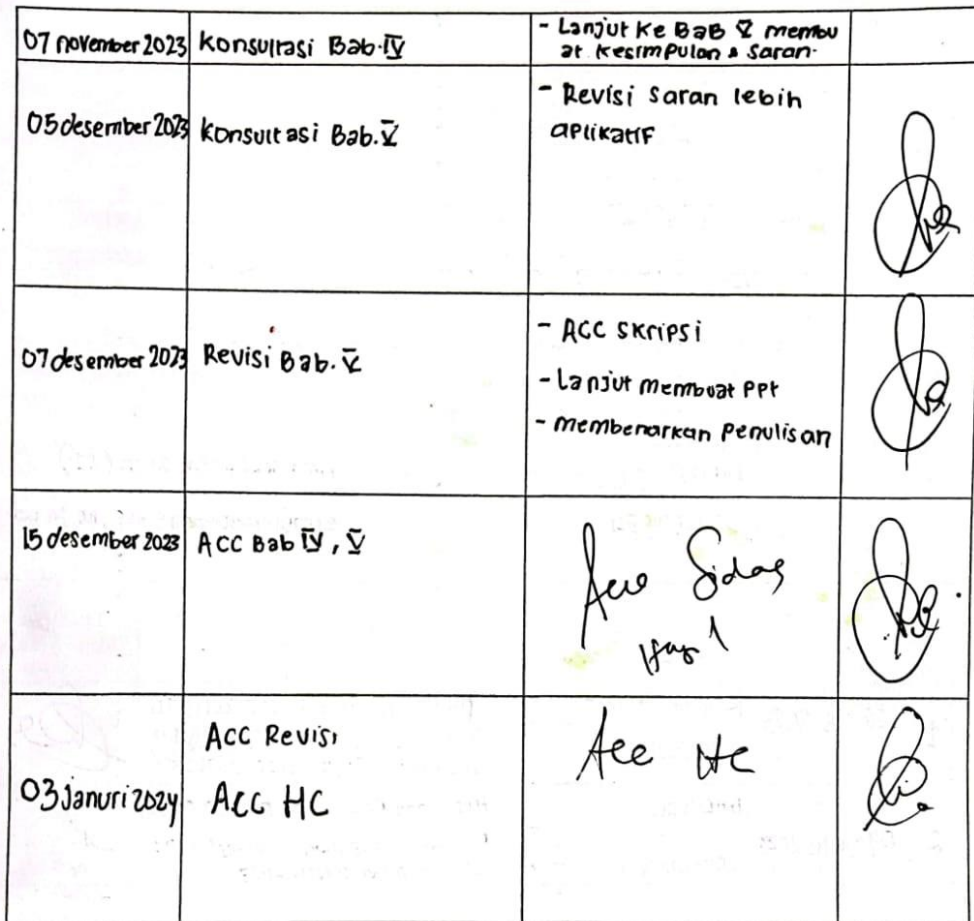 07 november 2023
Konsultasi Bab.IV
- Lanjut Ke BaB V membu
at Kesimpulan & Saran.
05 desember 2023
Konsultasi Bab.V
- Revisi Saran lebih
aplikatif
07 desember 2023
Revisi Bab.V
- ACC SKripsi
- Lanjut membuat PPt
- membenarkan Penulisan
15 desember 2023
ACC Bab IV, V
Acc Sidang
Hasil
03 Januri 2024
Acc Revisi
Acc HC
Acc HC